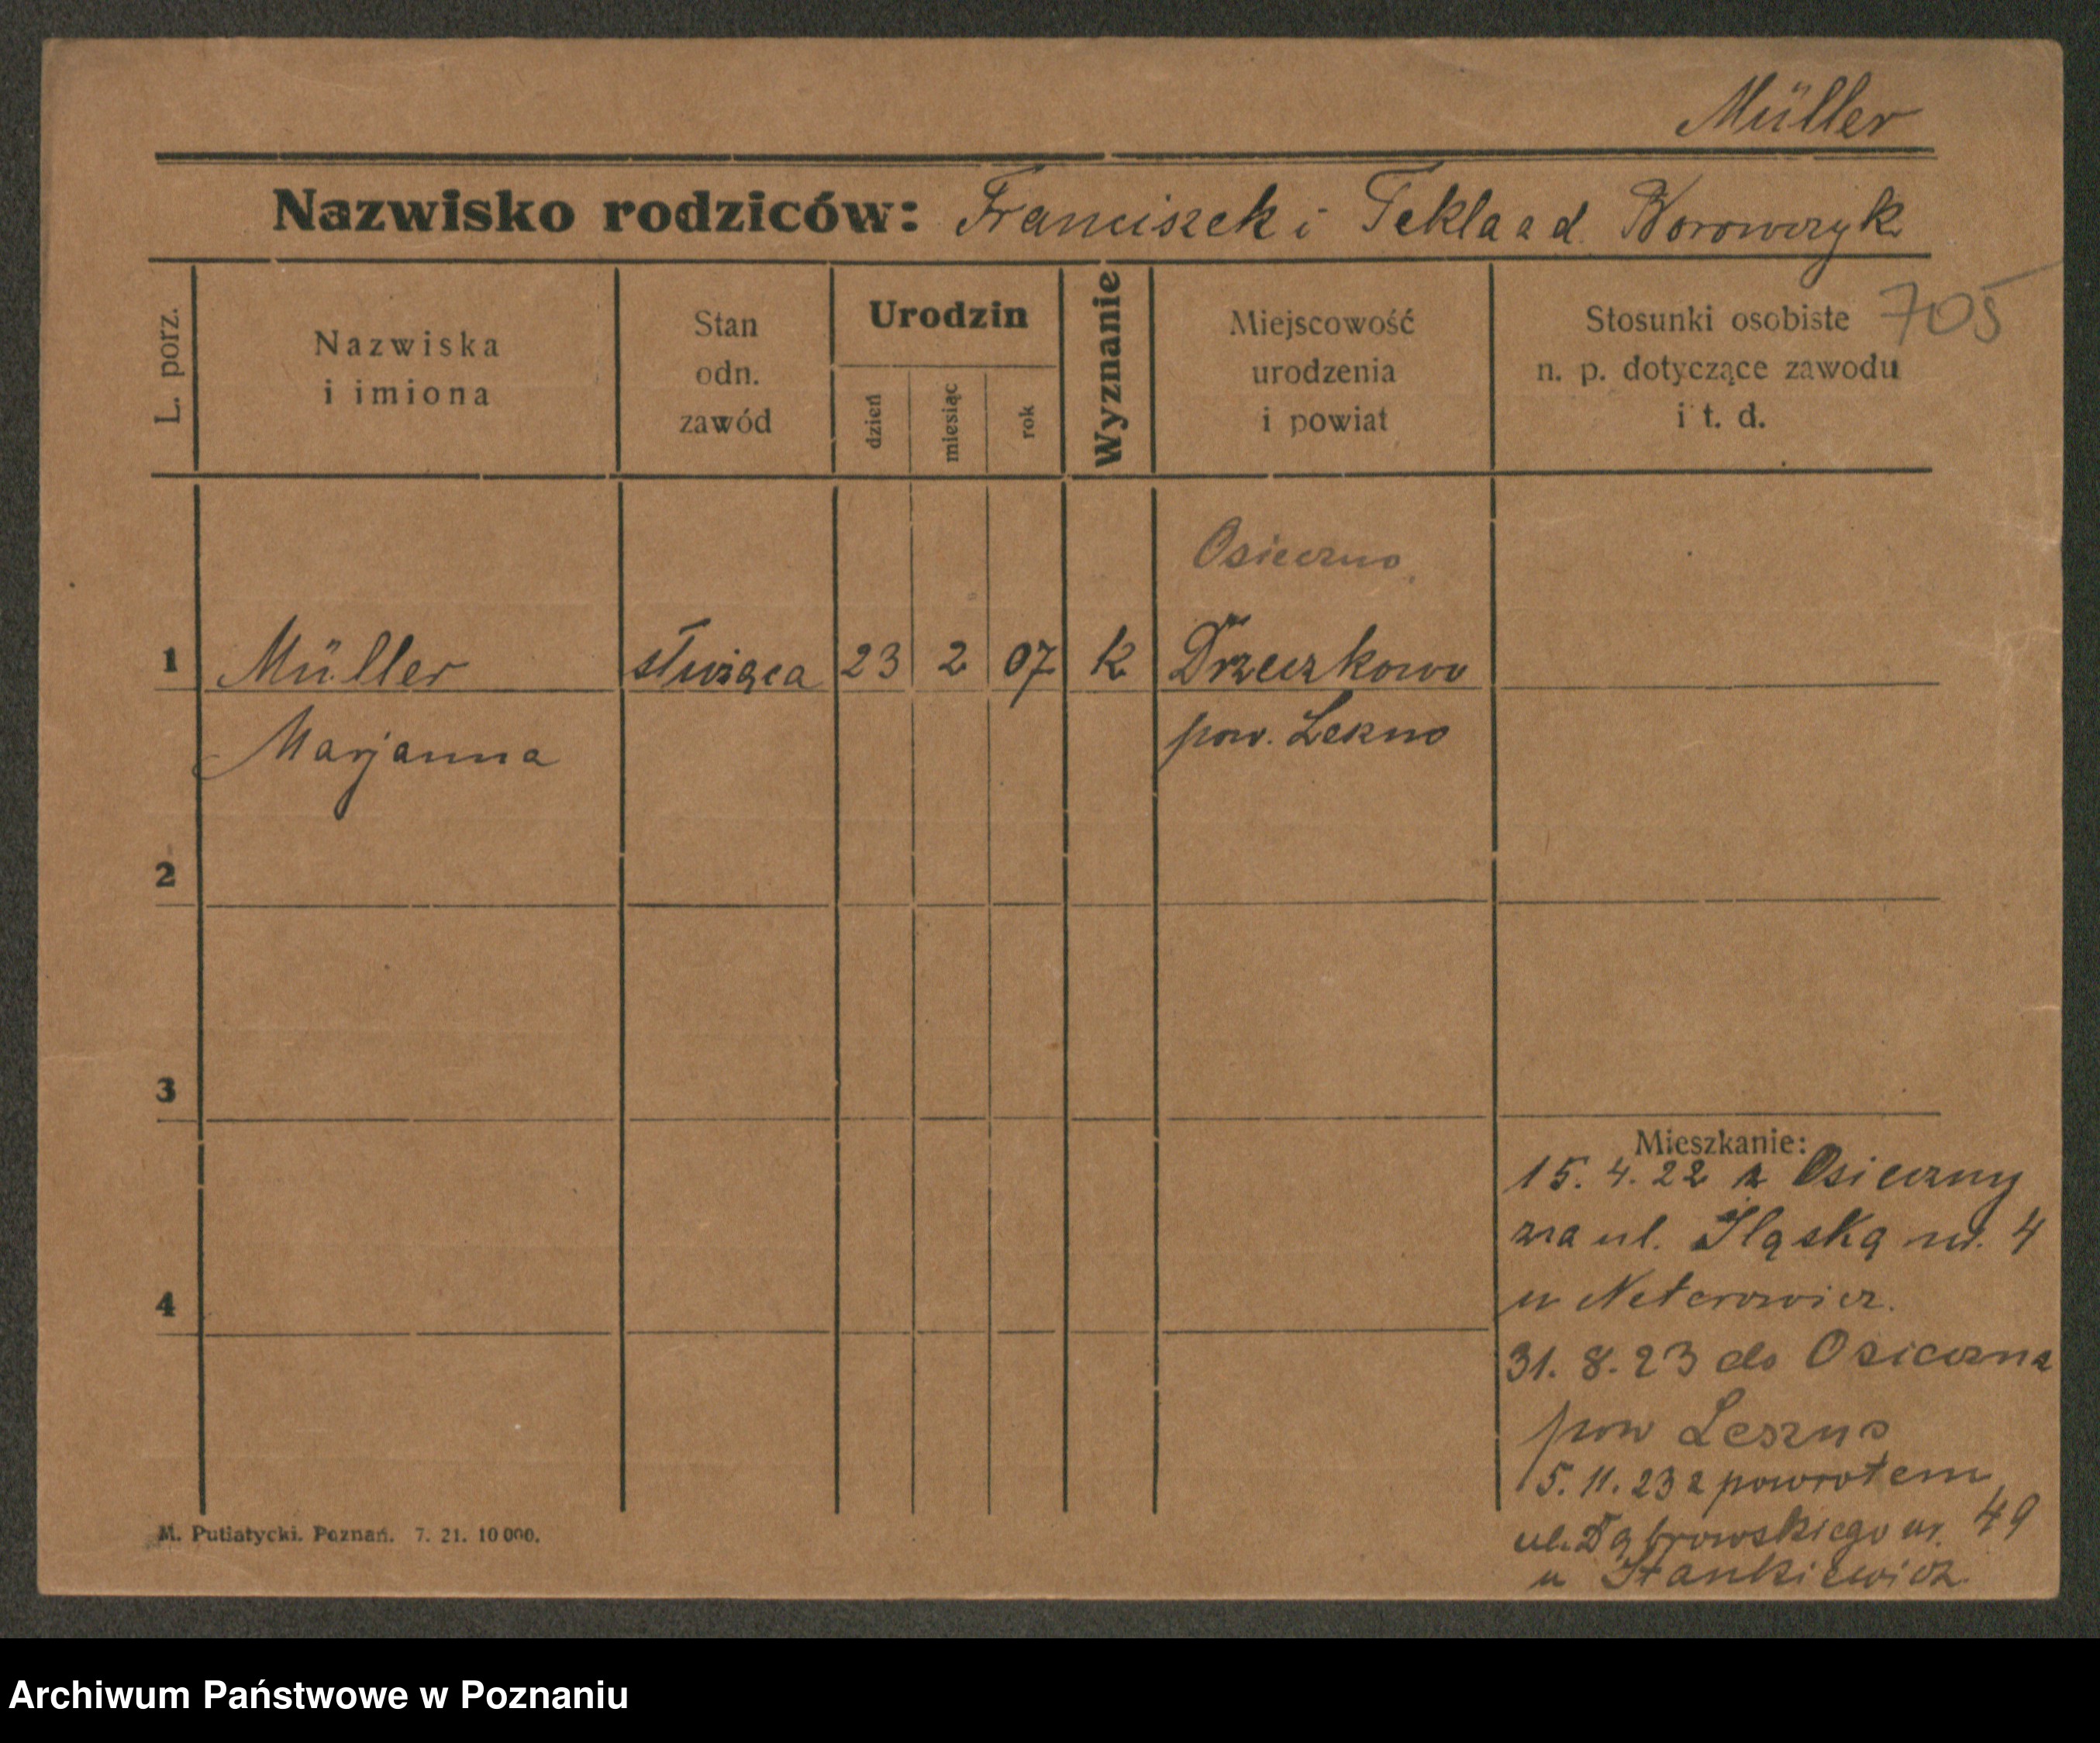 Müller
Nazwisko rodziców: Franciszek i Tekla z d. Borowczyk
L. porz.
Nazwiska
i imiona
Stan
odn.
zawód
Urodzin
dzień
miesiąc
rok
Wyznanie
Miejscowość
urodzenia
i powiat
Stosunki osobiste
n. p. dotyczące zawodu
i t. d.
705
Osieczno
1 Müller służąca 23 2 07 k Drzeczkowo
Marjanna pow. Leszno
2
3
4
Mieszkanie:
15. 4. 22 z Osieczny
na ul. Śląską nr. 4
u
31. 8. 23 do Osieczna
pow Leszno
5. 11. 23 z powrotem
ul. Dąbrowskiego nr. 49
u Stankiewicz
M. Putiatycki. Poznań. 7. 21. 10 000.
Archiwum Państwowe w Poznaniu